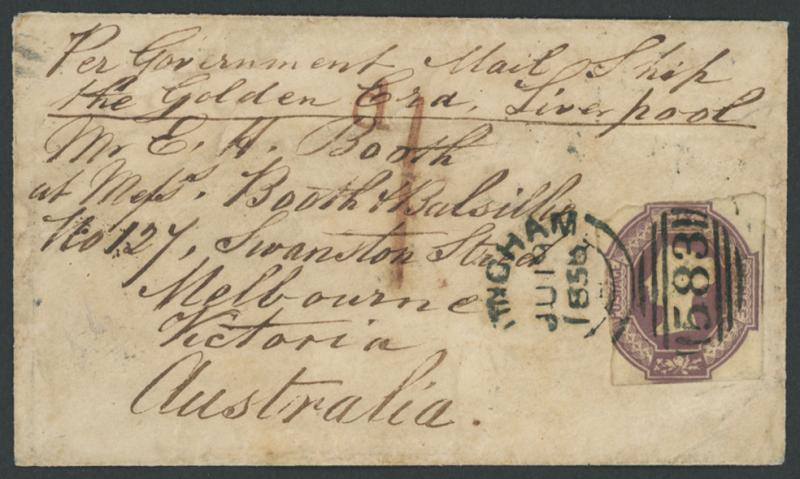 Per Government Mail Ship
the Golden Era, Liverpool
Mr E. H. Booth
at Messs. Booth & Balsillie
No 127, Swanston Street
Melbourne
Victoria
Australia.
INGHAM
JU 19
1854
583